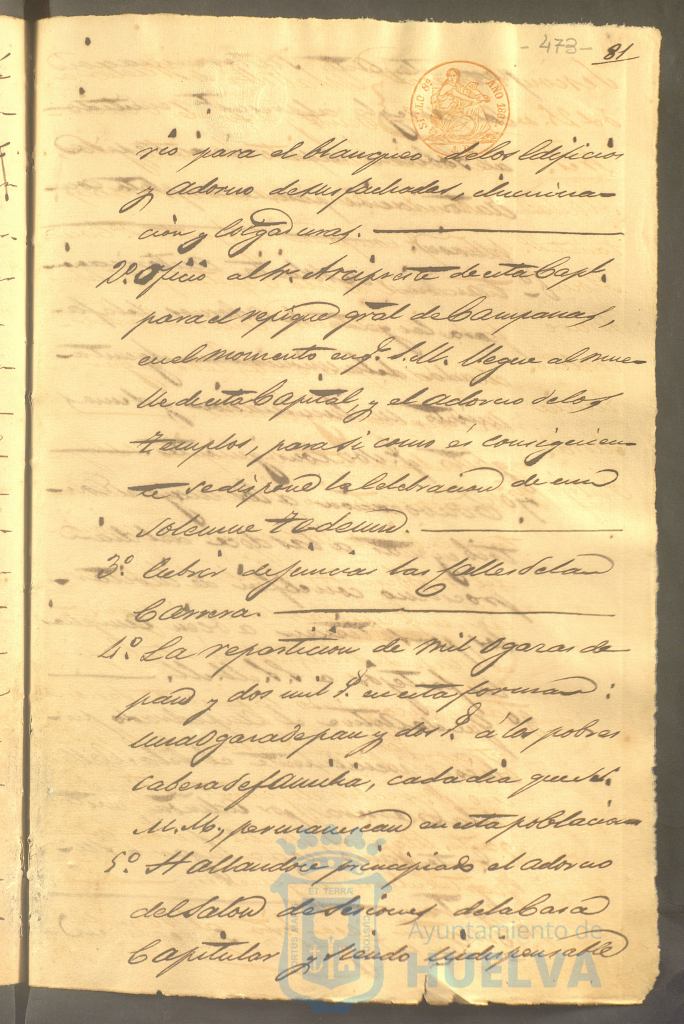 - 473 -
81
SELLO 8º AÑO 188
rio para el blanqueo de los Edificios
y adorno de sus fachadas, ilumina-
cion y colgaduras.
2º. Oficio al Sr. Arcipreste de esta Capl.
para el repique gral de Campanas,
en el momento en q.e S. M. llegue al mue-
lle de esta Capital, y el adorno de los
templos, para si como és consiguien-
te se dispone la celebracion de un
solemne Tedeum.
3º. Cubrir de juncias las Calles de la
Carrera.
4º. La reparticion de mil ogazas de
pan y dos mil r.s en esta forma:
una Ogaza de pan y dos r.s á los pobres
cabeza de familia, cada dia que S.S.
M.M. permanezcan en esta poblacion
5º. Hallandose principiado el adorno
del Salon de Sesiones de la Casa
Capitular y siendo indispensable
ET TERRÆ
Ayuntamiento de
HUELVA